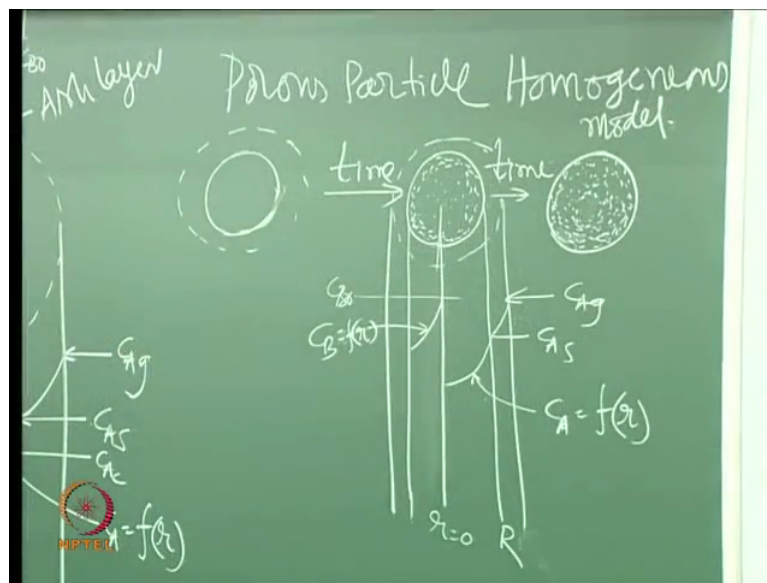 C_B0
Ash layer
Porous Particle Homogeneous
model.
time
time
C_B0
C_Ag
C_B = f(r)
C_As
C_Ag
C_A = f(r)
C_As
C_Ac
r=0
R
A = f(r)
NPTEL